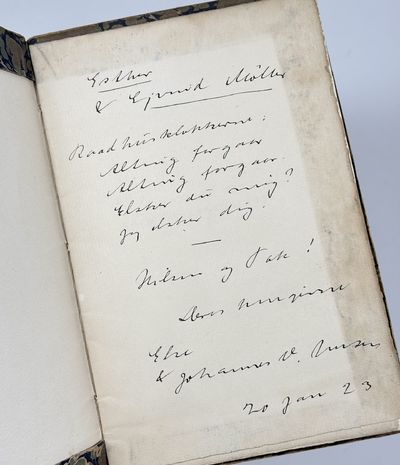 Esther
& Ejvind Möller
Raadhusklokkerne:
Alting forgaar
Alting forgaar.
Elsker du mig?
Jeg elsker dig.
Hilsen og Tak!
Deres hengivne
Else
& Johannes V. Jensen
20 Jan 23